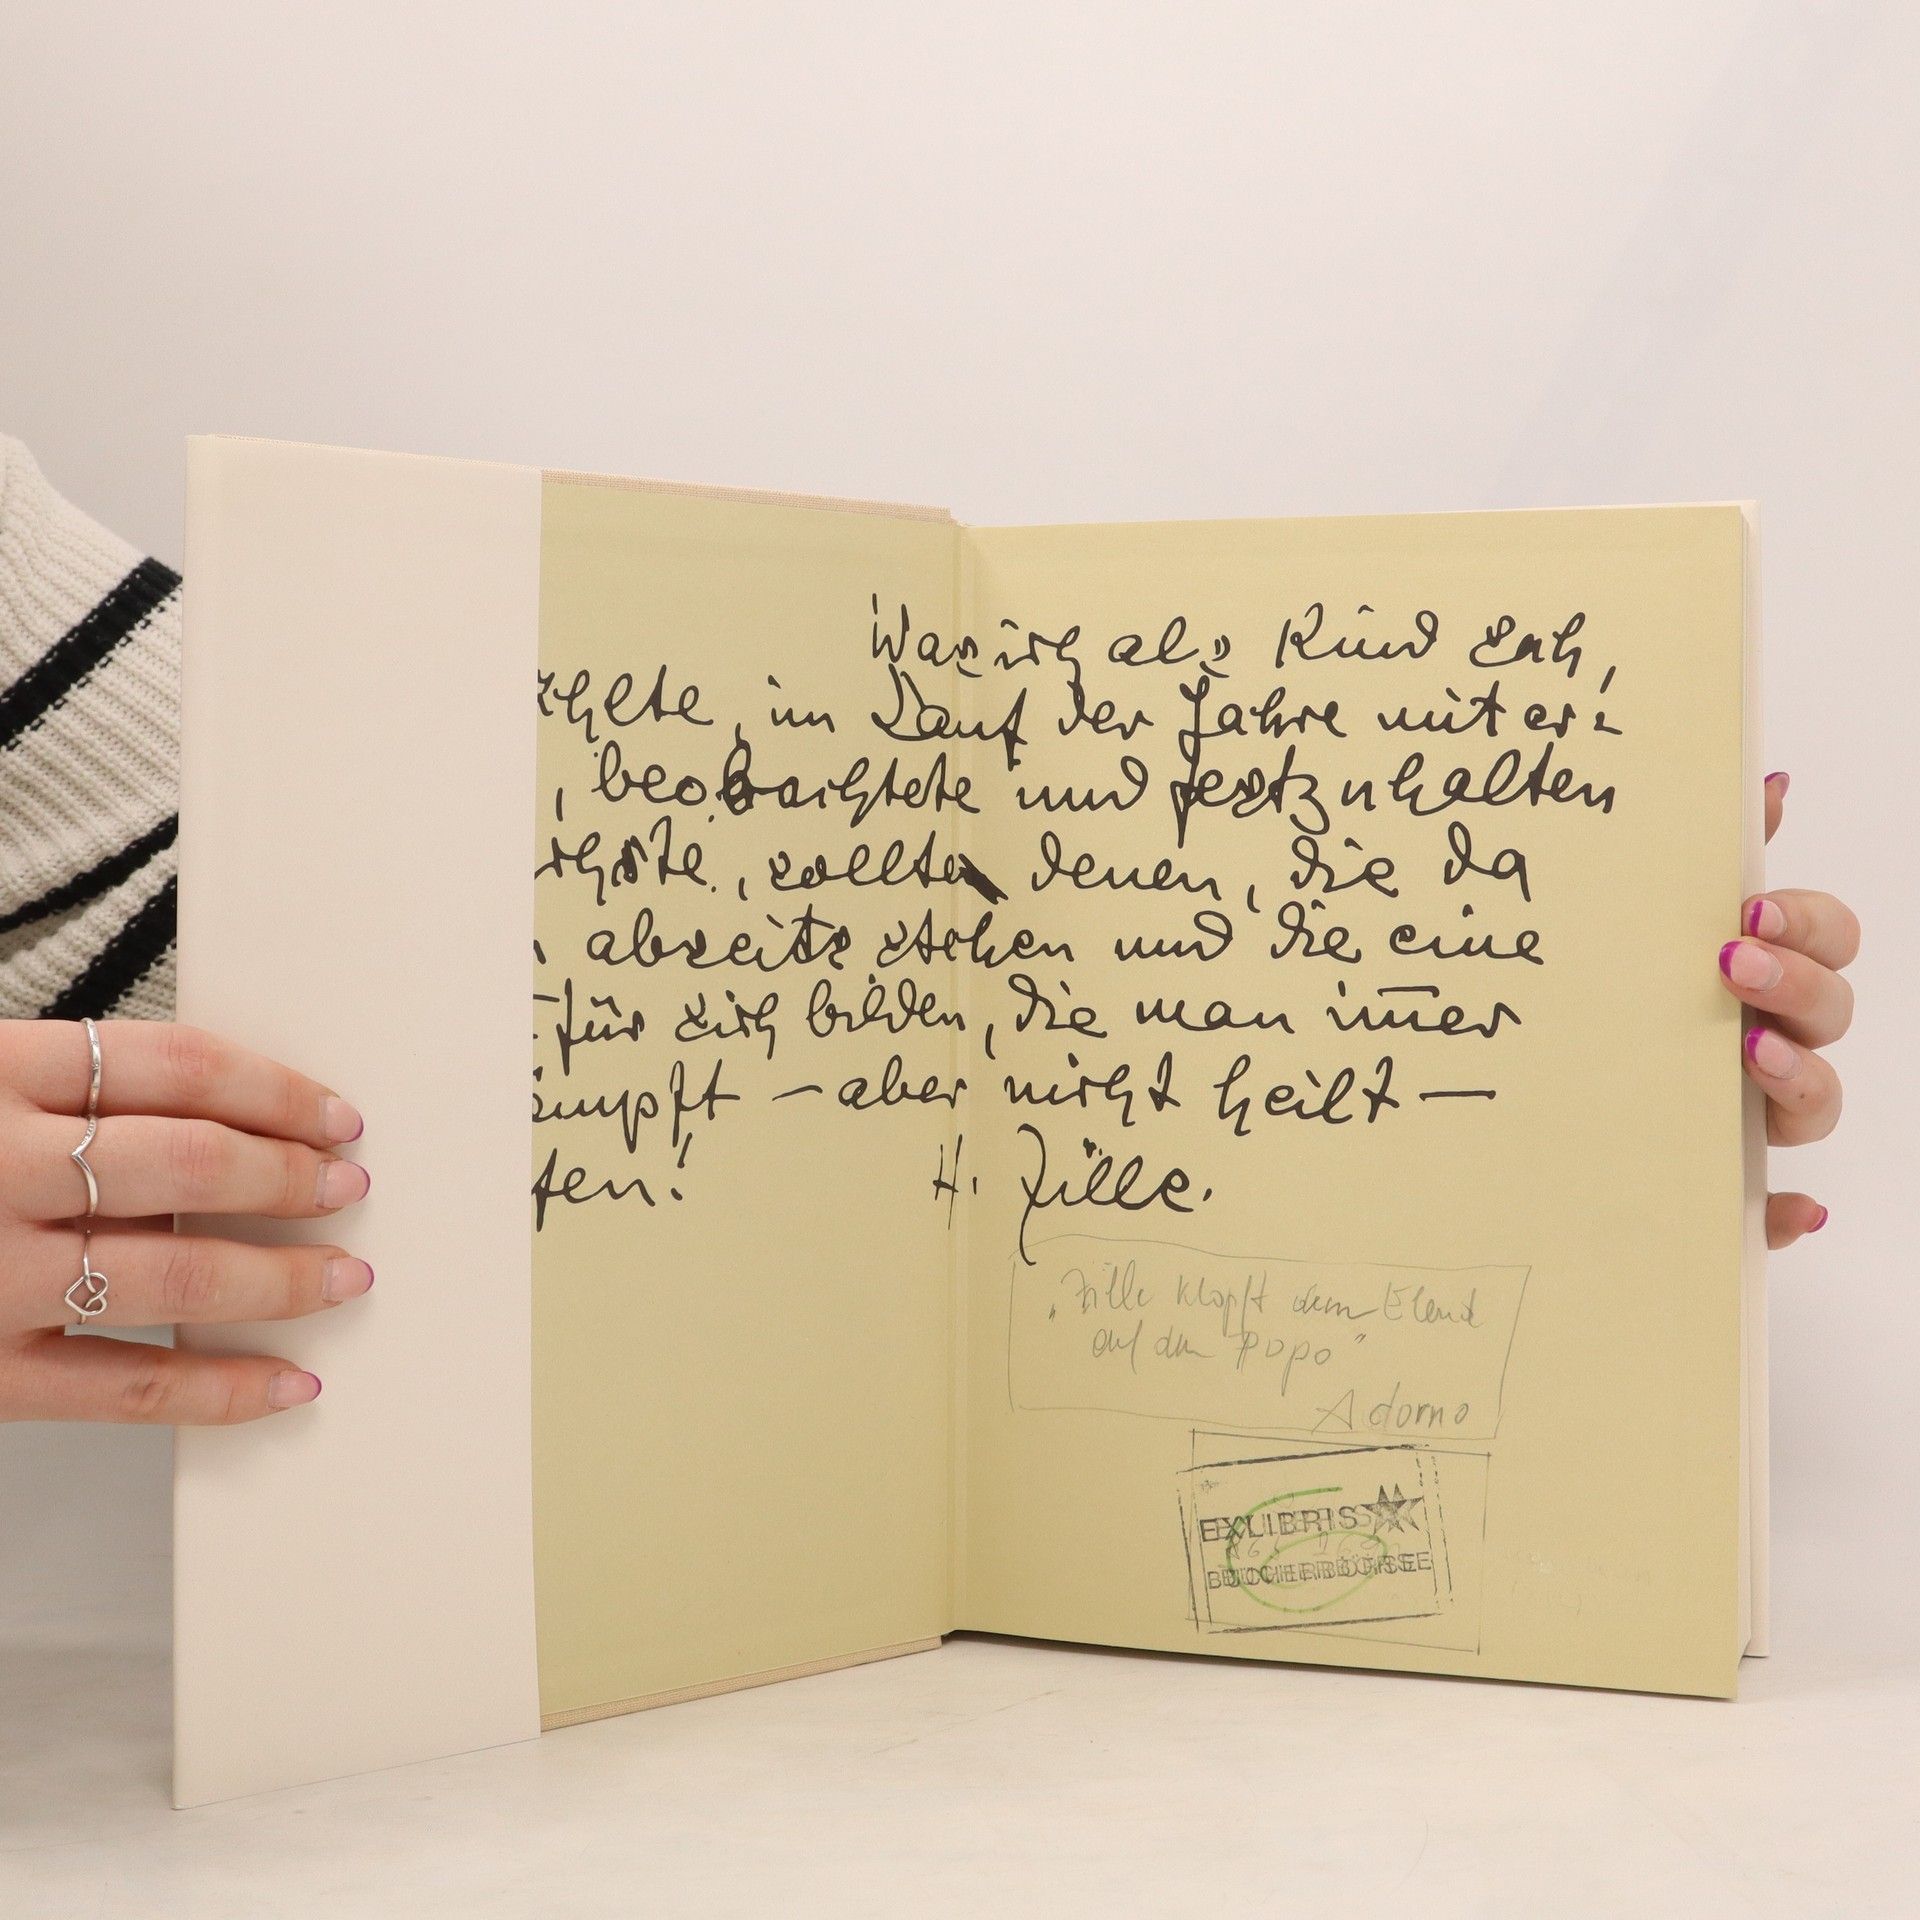 Was ich als Kind sah,
hlte, im Lauf der Jahre mit er=
, beobachtete und festzuhalten
chste, sollte denen, die da
abseits stehen und die eine
für sich bilden, die man im̅er
ämpft – aber nicht heilt –
ten! H. Zille.
"Zille klopft dem Elend
auf den Popo"
Adorno
EXLIBRIS
BÜCHERBÖRSE